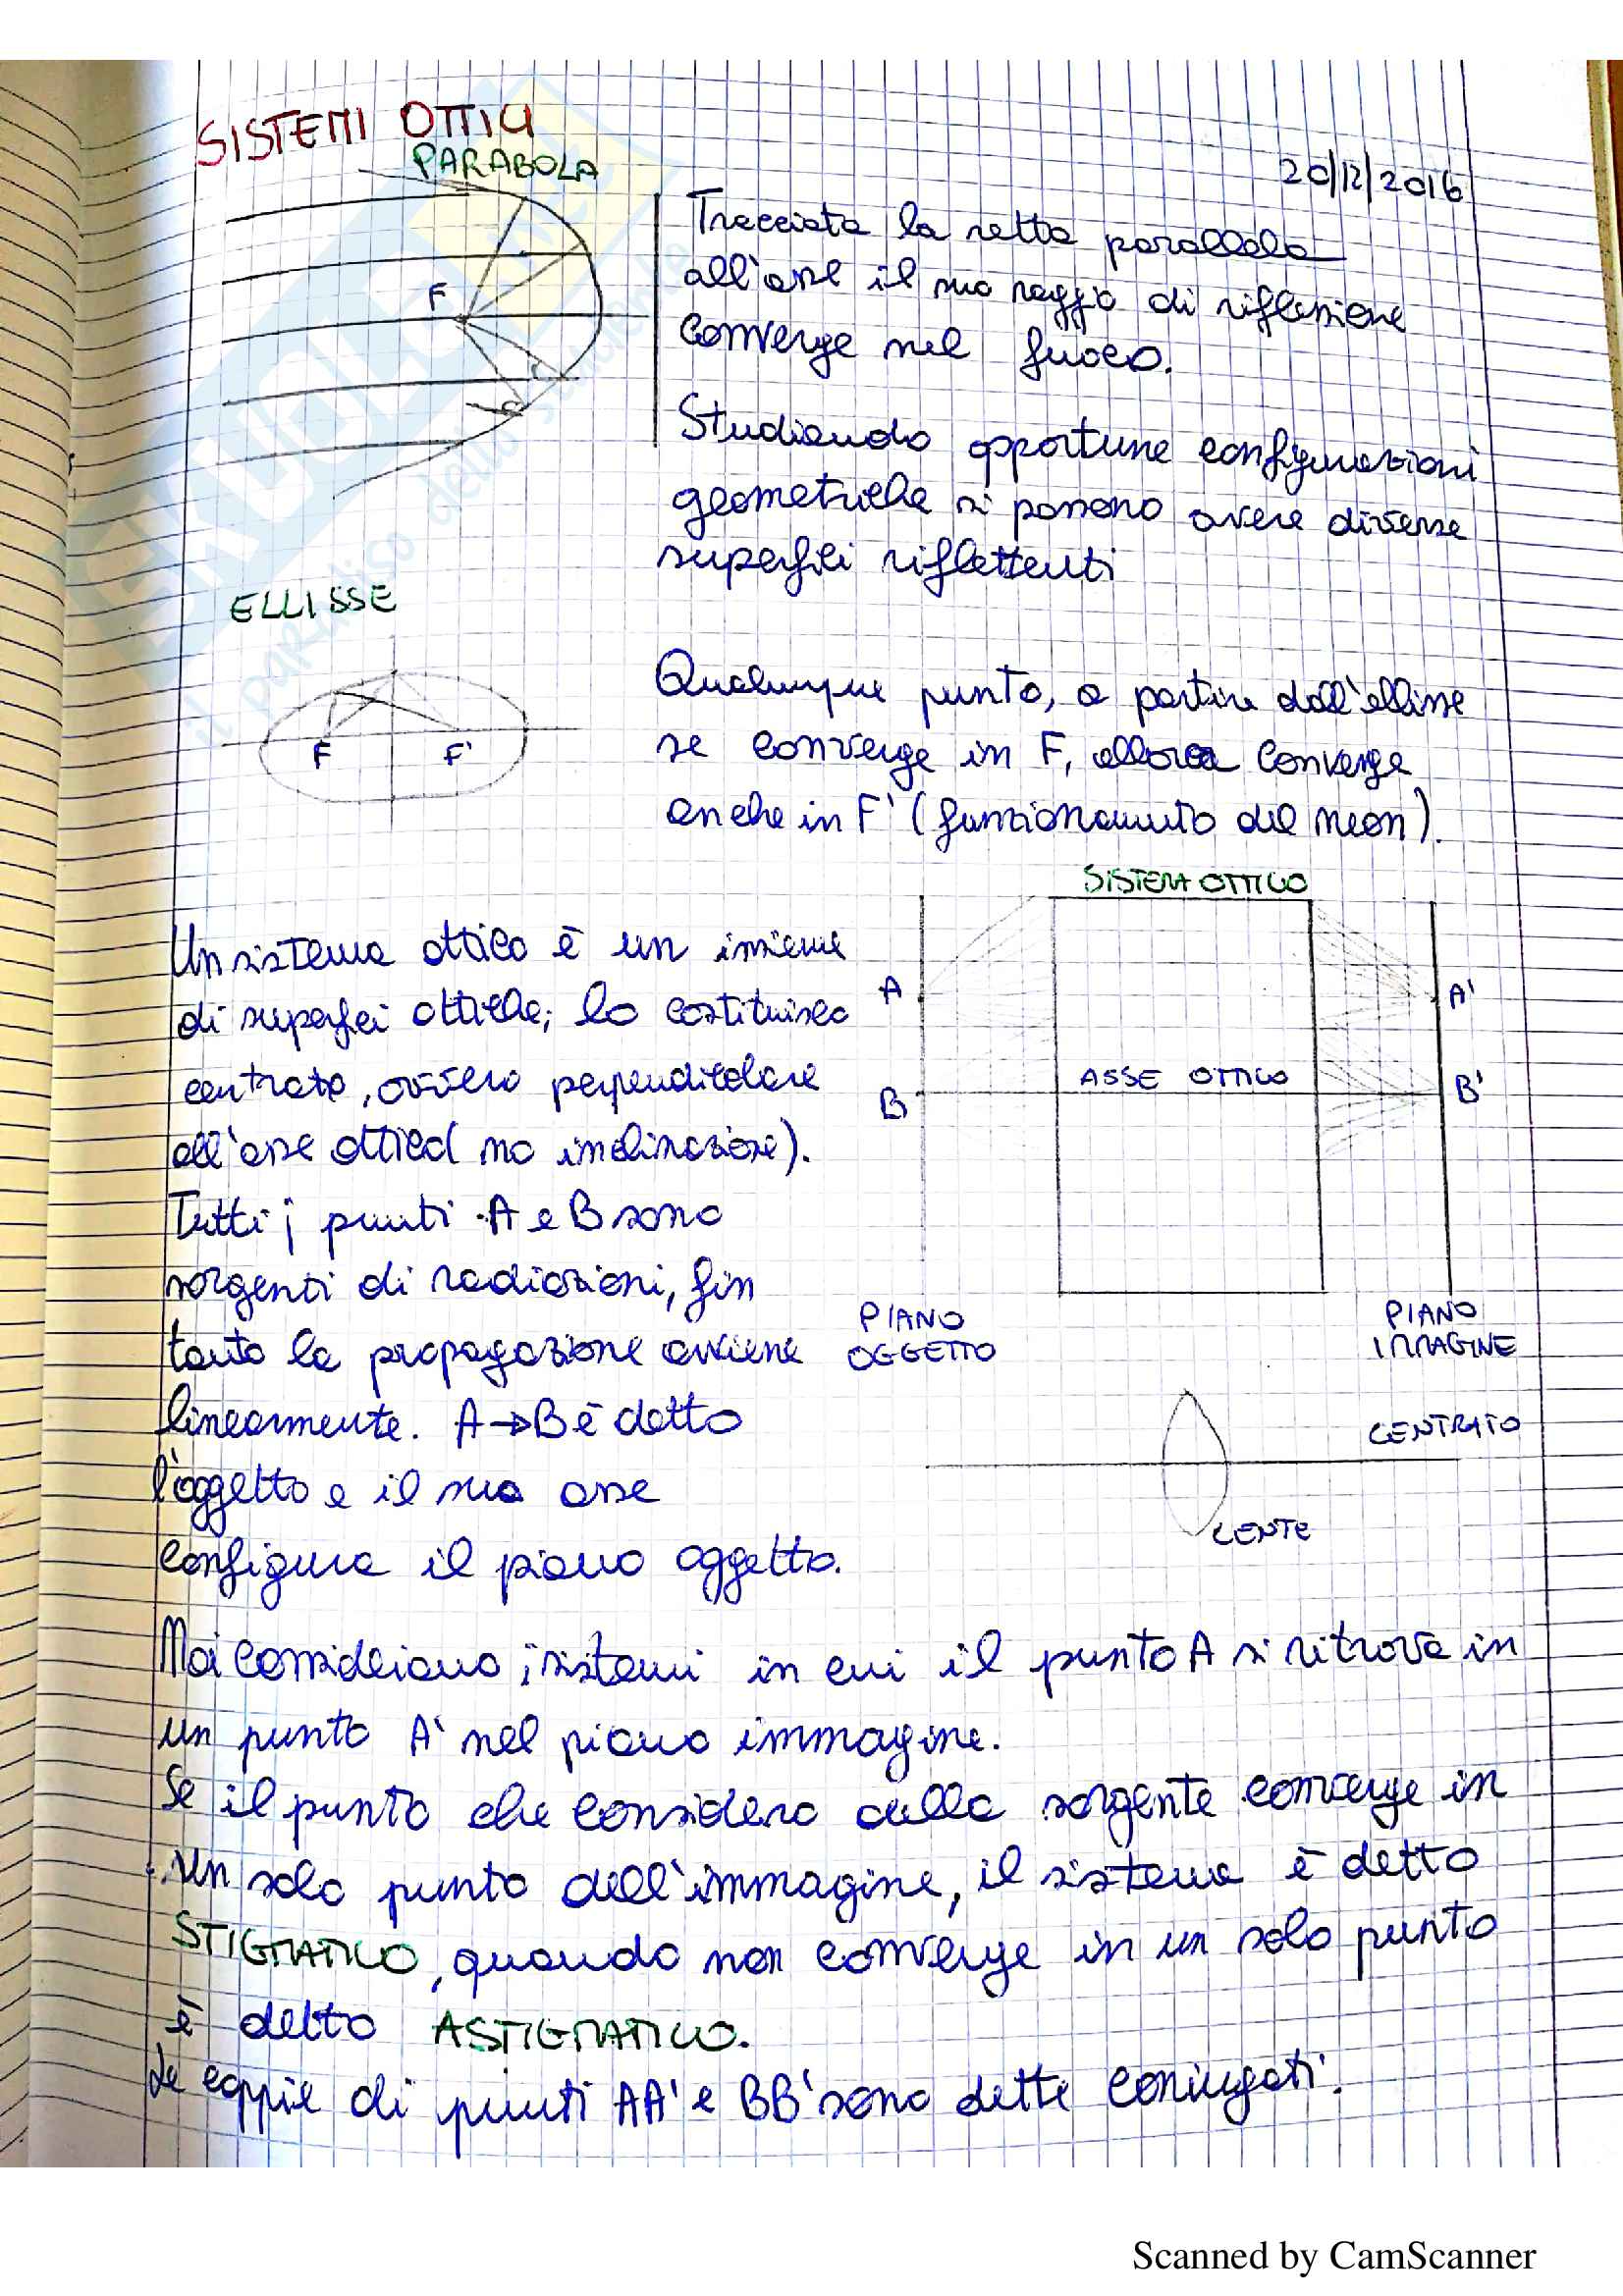 SISTEMI OTTICI
PARABOLA
20/12/2016
Tracciata la retta parallela
all'asse il suo raggio di riflessione
converge nel fuoco.
F
Studiando opportune configurazioni
geometriche si possono avere diverse
superfici riflettenti
ELLISSE
F F'
Qualunque punto, a partire dall'ellisse
se converge in F, allora converge
anche in F' (funzionamento del neon).
SISTEMA OTTICO
Un sistema ottico è un insieme
di superfici ottiche; lo costituisco
centrato, ovvero perpendicolare
all'asse ottico (no inclinazione).
Tutti i punti A e B sono
sorgenti di radiazioni, fin
tanto la propagazione avviene
linearmente. A→B è detto
l'oggetto e il suo asse
configura il piano oggetto.
A
A'
ASSE OTTICO
B
B'
PIANO
OGGETTO
PIANO
IMMAGINE
CENTRATO
LENTE
Noi consideriamo i sistemi in cui il punto A si ritrova in
un punto A' nel piano immagine.
Se il punto che considero dalla sorgente converge in
un solo punto dell'immagine, il sistema è detto
STIGMATICO, quando non converge in un solo punto
è detto ASTIGMATICO.
Le coppie di punti AA' e BB' sono dette coniugati.
il paradiso dello studente
Scanned by CamScanner